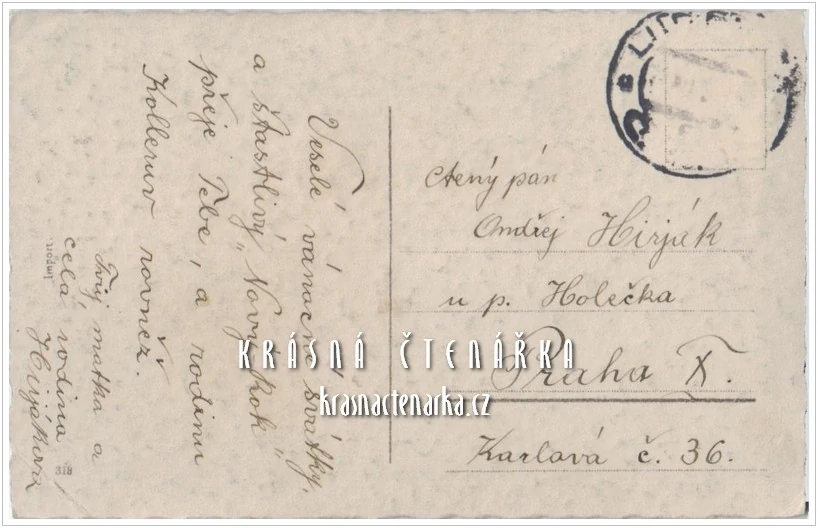 Veselé vánoční svátky,
a šťastlivý „Nový Rok"
přeje Tebe, a rodinu
Kollerův rovněž.
Tvůj matka a
celá rodina
Hirjáková
Ctený pán
Ondřej Hirják
u p. Holečka
Praha X.
Karlová č. 36.
KRÁSNÁ ČTENÁŘKA
krasnactenarka.cz
318